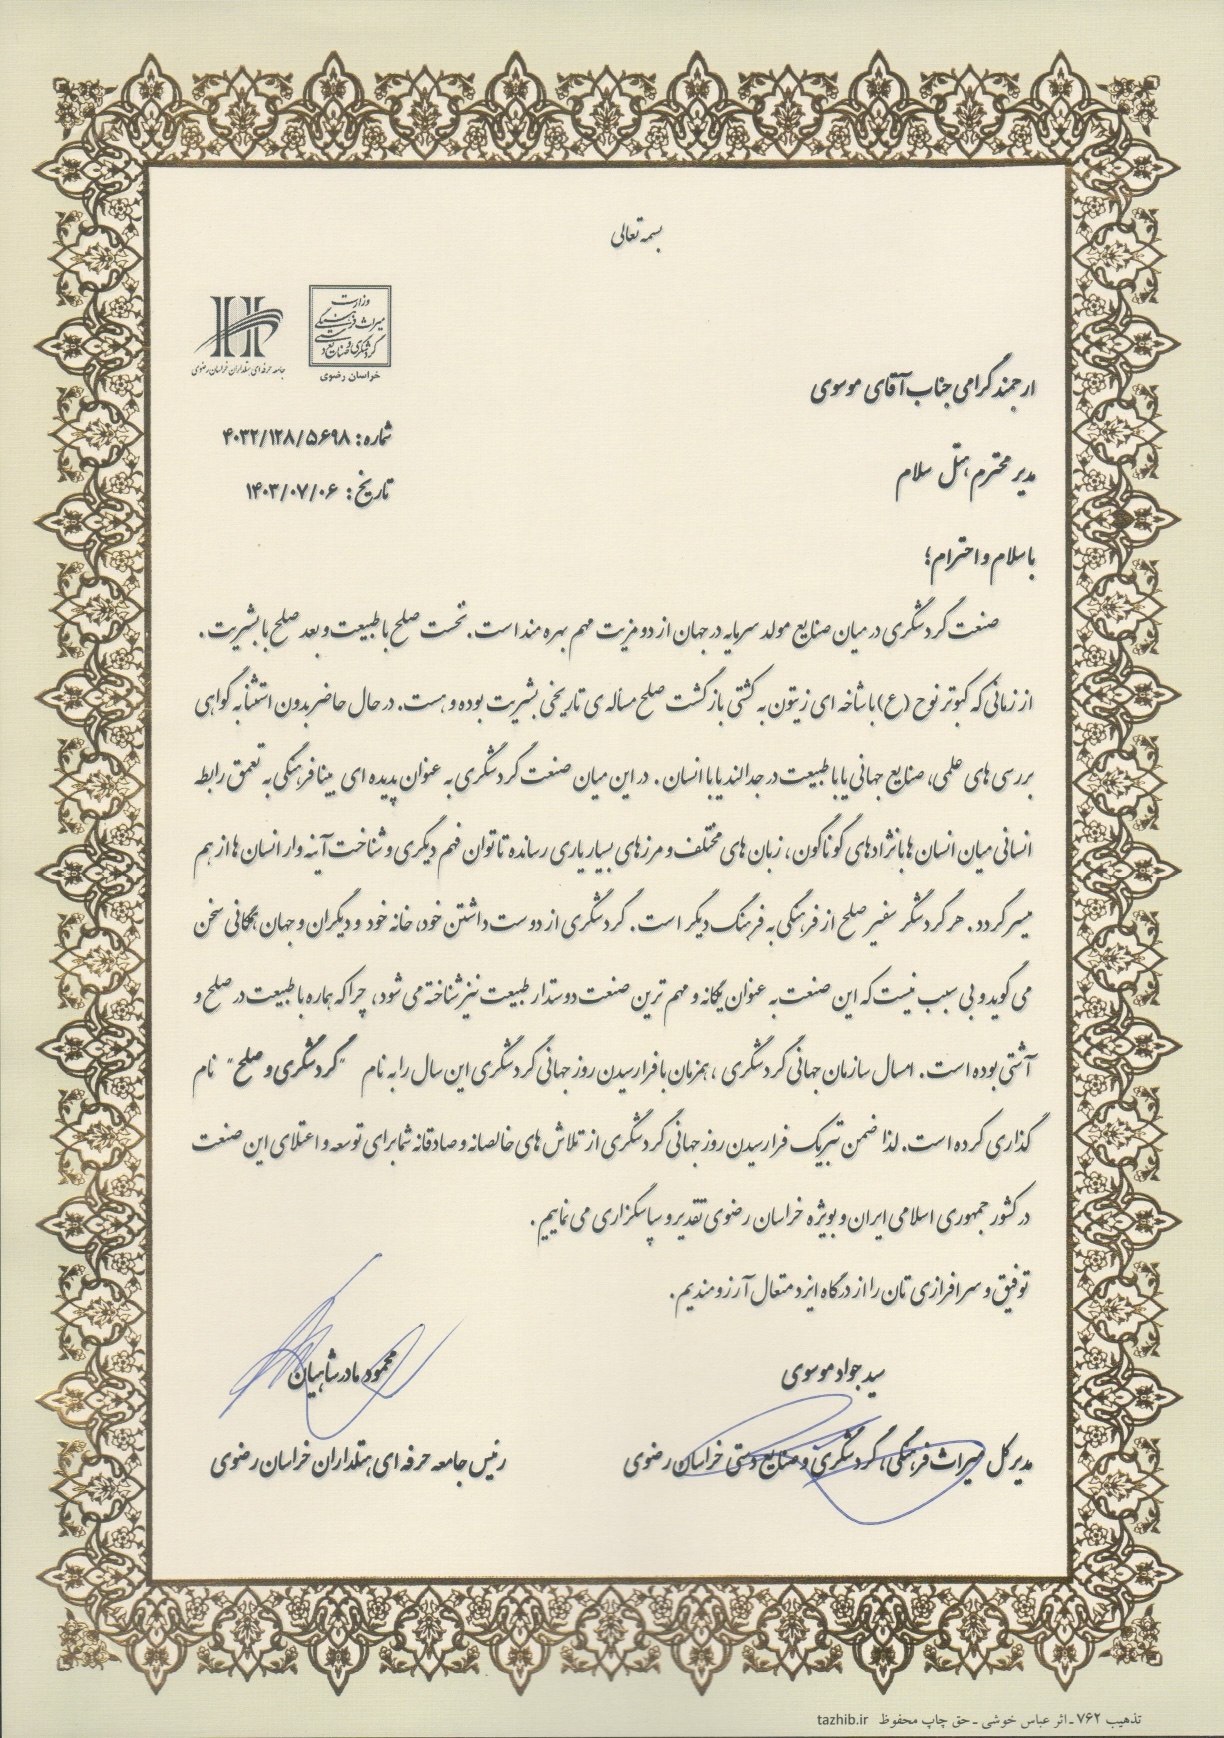 بسمه تعالی
وزارت
میراث فرهنگی
گردشگری و صنایع دستی
خراسان رضوی
جامعه حرفه ای هتلداران خراسان رضوی
شماره: ۴۰۳۲/۱۲۸/۵۶۹۸
تاریخ: ۱۴۰۳/۰۷/۰۶
ارجمند گرامی جناب آقای موسوی
مدیر محترم هتل سلام
با سلام و احترام؛
صنعت گردشگری در میان صنایع مولد سرمایه در جهان از دو مزیت مهم بهره مند است. نخست صلح با طبیعت و بعد صلح با بشریت.
از زمانی که کبوتر نوح (ع) با شاخه ای زیتون به کشتی بازگشت صلح مسأله ی تاریخی بشریت بوده و هست. در حال حاضر بدون استثنا به گواهی
بررسی های علمی، صنایع جهانی یا با طبیعت در جدالند یا با انسان. در این میان صنعت گردشگری به عنوان پدیده ای بینافرهنگی به تعمق رابطه
انسانی میان انسان ها با نژادهای گوناگون، زبان های مختلف و مرزهای بسیار یاری رسانده تا توان فهم دیگری و شناخت آینه وار انسان ها از هم
میسر گردد. هر گردشگر سفیر صلح از فرهنگی به فرهنگ دیگر است. گردشگری از دوست داشتن خود، خانه خود و دیگران و جهان همگانی سخن
می گوید و بی سبب نیست که این صنعت به عنوان یگانه و مهم ترین صنعت دوستدار طبیعت نیز شناخته می شود، چرا که هماره با طبیعت در صلح و
آشتی بوده است. امسال سازمان جهانی گردشگری، همزمان با فرارسیدن روز جهانی گردشگری این سال را به نام "گردشگری و صلح" نام
گذاری کرده است. لذا ضمن تبریک فرارسیدن روز جهانی گردشگری از تلاش های خالصانه و صادقانه شما برای توسعه و اعتلای این صنعت
در کشور جمهوری اسلامی ایران و بویژه خراسان رضوی تقدیر و سپاسگزاری می نماییم.
توفیق و سرافرازی تان را از درگاه ایزد متعال آرزومندیم.
سید جواد موسوی
مدیر کل میراث فرهنگی، گردشگری و صنایع دستی خراسان رضوی
محمود مادرشاهیان
رئیس جامعه حرفه ای هتلداران خراسان رضوی
تذهیب ۷۶۲ - اثر عباس خوشی - حق چاپ محفوظ tazhib.ir